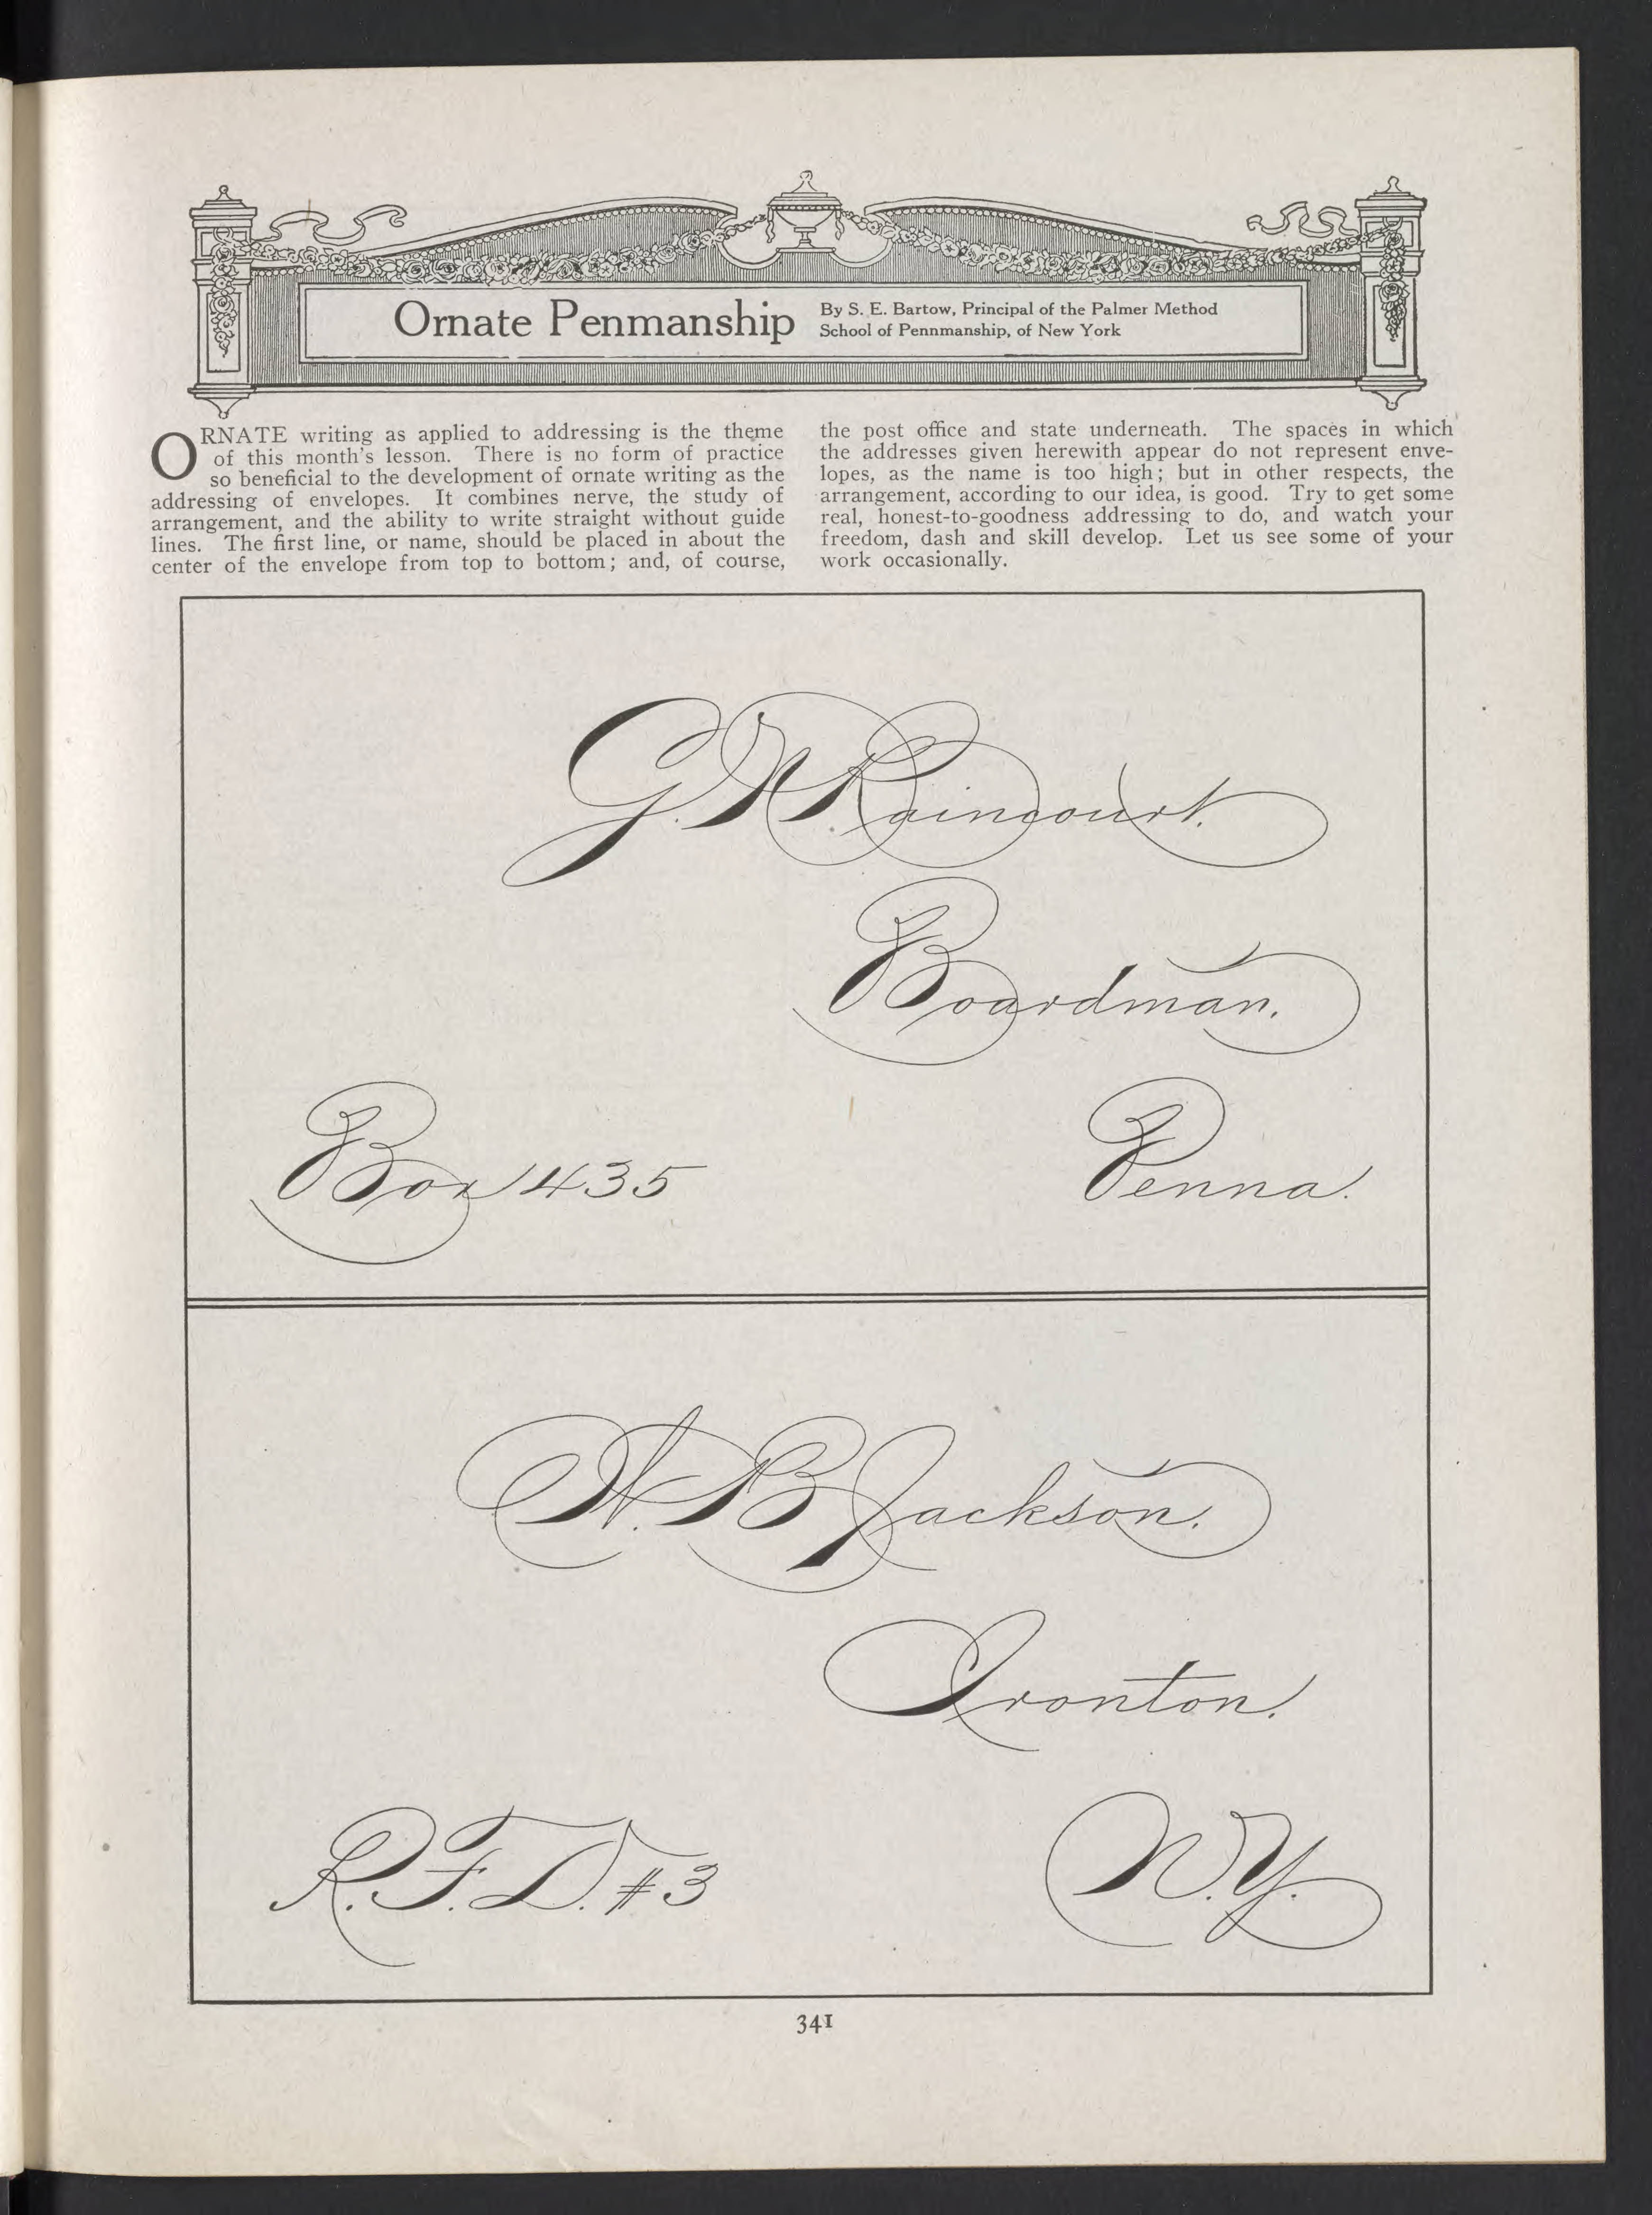 Ornate Penmanship
By S. E. Bartow, Principal of the Palmer Method
School of Pennmanship, of New York
ORNATE writing as applied to addressing is the theme
of this month's lesson. There is no form of practice
so beneficial to the development of ornate writing as the
addressing of envelopes. It combines nerve, the study of
arrangement, and the ability to write straight without guide
lines. The first line, or name, should be placed in about the
center of the envelope from top to bottom; and, of course,
the post office and state underneath. The spaces in which
the addresses given herewith appear do not represent enve-
lopes, as the name is too high; but in other respects, the
arrangement, according to our idea, is good. Try to get some
real, honest-to-goodness addressing to do, and watch your
freedom, dash and skill develop. Let us see some of your
work occasionally.
G. N. Raincourt.
Boardman.
Box 1435
Penna.
A. B. Jackson.
Ironton.
R. F. D. #3
N. Y.
341